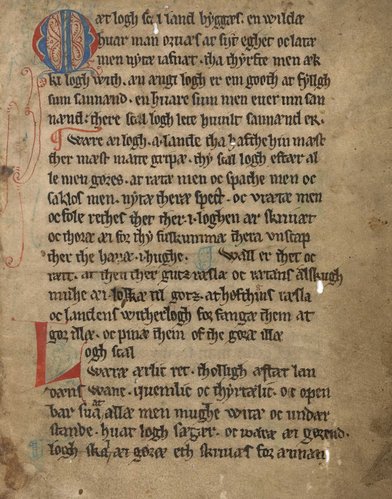 Mæt logh scal land byggæs. en wildæ
huar man oruæs at sit eghet oc latæ
men nytæ iafnæt. tha thyrftæ men æk
ki logh with. æn ængi logh er em gooth at fylgh
sum sannænd. en huare sum men ever um san
nænd. there scal logh lete huilt sannænd er.
Ware æi logh. a lande tha hafthe hin mæst
ther mæst matte gripæ. thy scal logh efter al
le men gøres. at rætæ men oc spache men oc
saklos men. nytæ theræ spect. oc vrætæ men
oc fole rethes thet ther. i. loghen ær skriuæt
oc thoræ æi for thy fulkummæ theræ vnscap
ther the hauæ. i. hughe. Wæll er thet oc
ræt. at then ther guz ræsla oc rætæns ælskugh
mughe æi lockæ til gotz. at høfthings ræsla
oc landens witherlogh for fange them at
gør illæ. oc pinæ them of the gøræ illæ
Logh scal
wæræ ærlic oc ret. tholligh æftær lan
dæns wanæ. quemlic oc thyrftælic. oc open
bar sua at allæ men mughe witæ oc undær
stande. huat logh sæger. oc wæræ æi gørend.
logh skal æi gøræ eth skriuæs for ænnæn